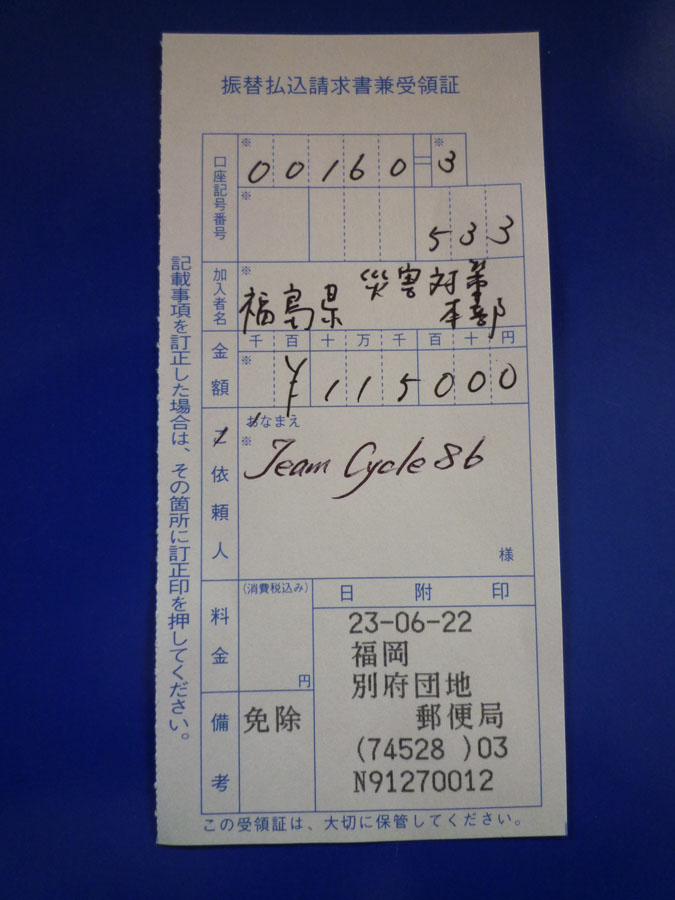 振替払込請求書兼受領証
口座記号番号
※ 00160 ※ 3
※ 533
加入者名
※ 福島県 災害対策
本部
金額
千 百 十 万 千 百 十 円
※ ¥115000
ご依頼人
おなまえ
※ Team Cycle 86
様
料金
(消費税込み)
円
日附印
23-06-22
福岡
別府団地
郵便局
(74528 )03
N91270012
備考
免除
記載事項を訂正した場合は、その箇所に訂正印を押してください。
この受領証は、大切に保管してください。